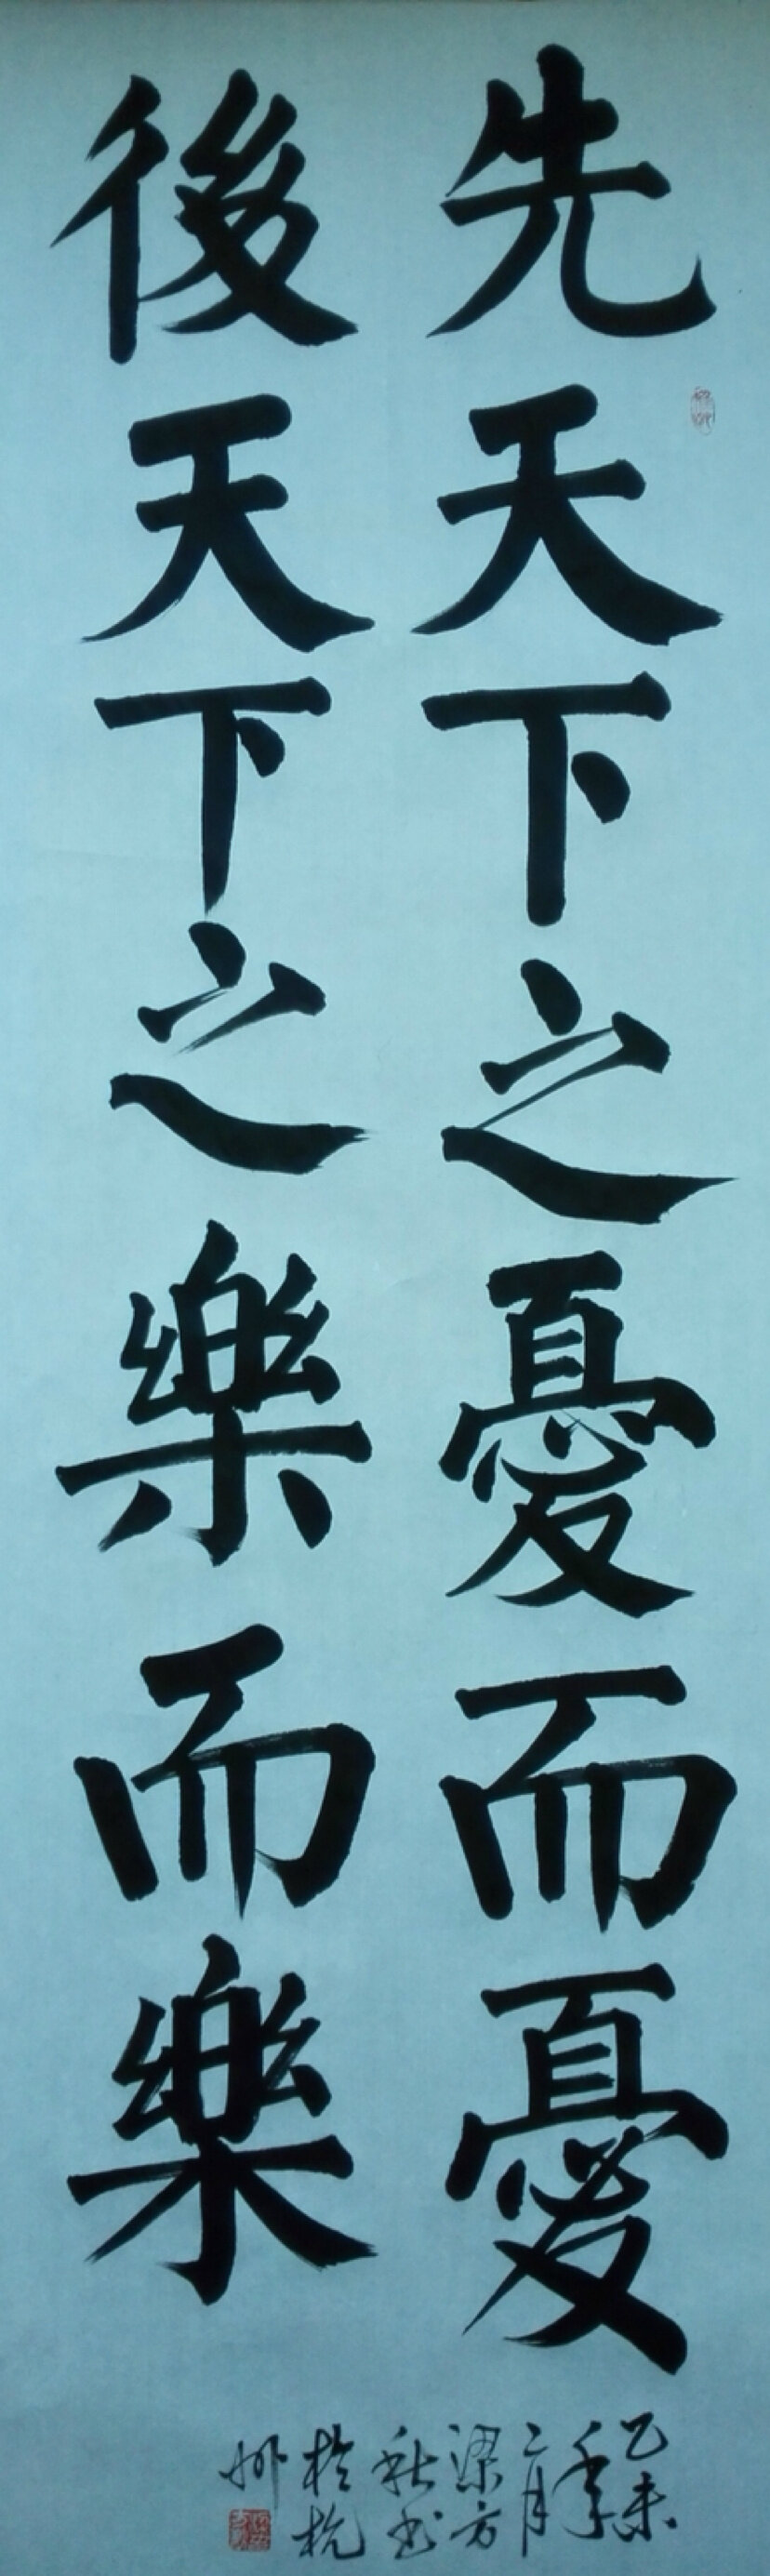 先天下之憂而憂
後天下之樂而樂
乙未
年
二月
梁方
秋书
於杭
州